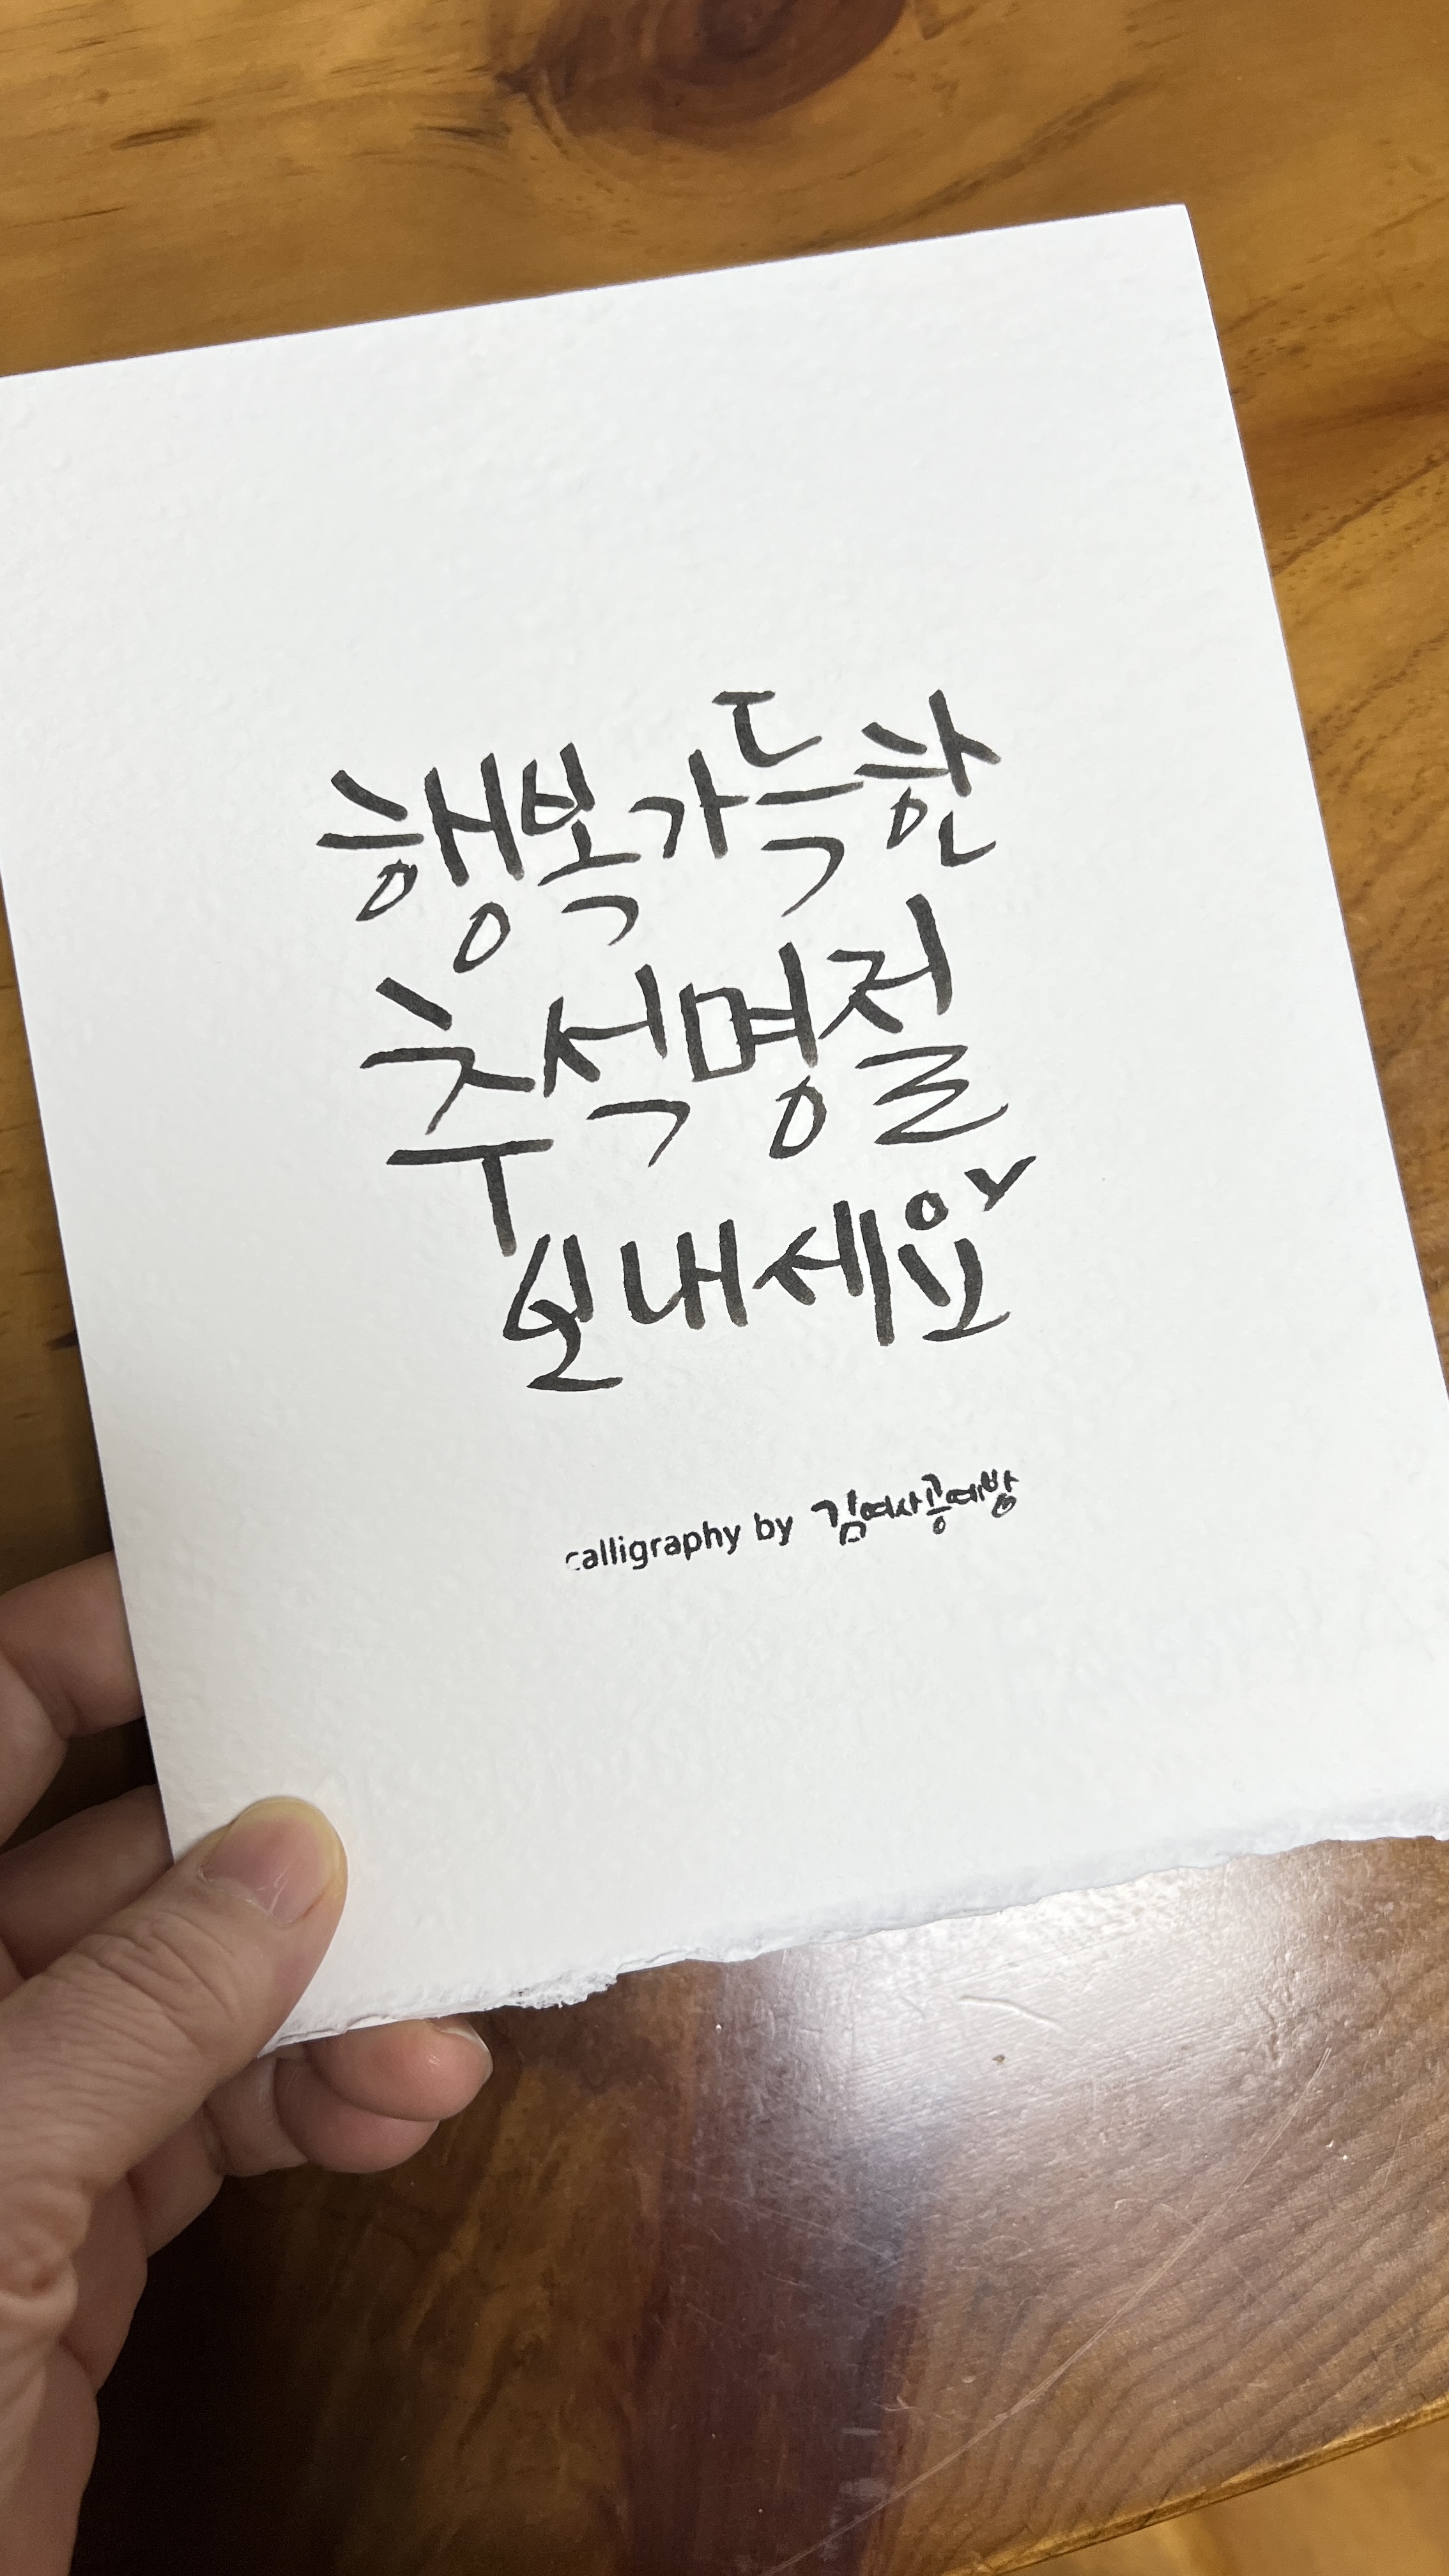 행복가득한
추석명절
보내세요
calligraphy by 김여사공예방